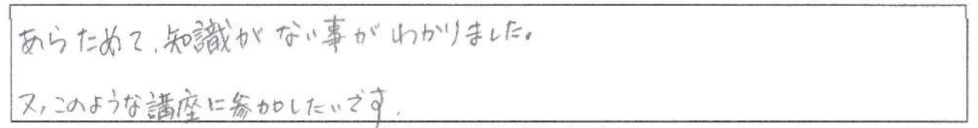 あらためて、知識がない事がわかりました。
又、このような講座に参加したいです。